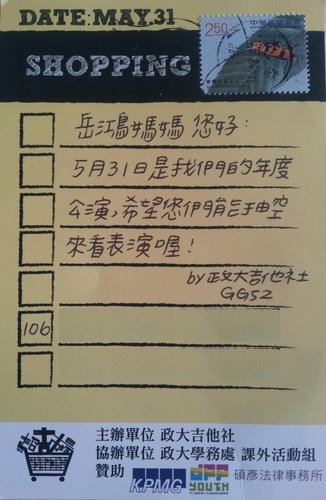 DATE:MAY.31
SHOPPING
中華民國郵票
250
岳江鳥媽媽 您好:
5月31日是我們的年度
公演,希望您們能抽空
來看表演喔!
by 政大吉他社
GG52
106
主辦單位 政大吉他社
協辦單位 政大學務處 課外活動組
贊助 KPMG YOUTH 碩彥法律事務所